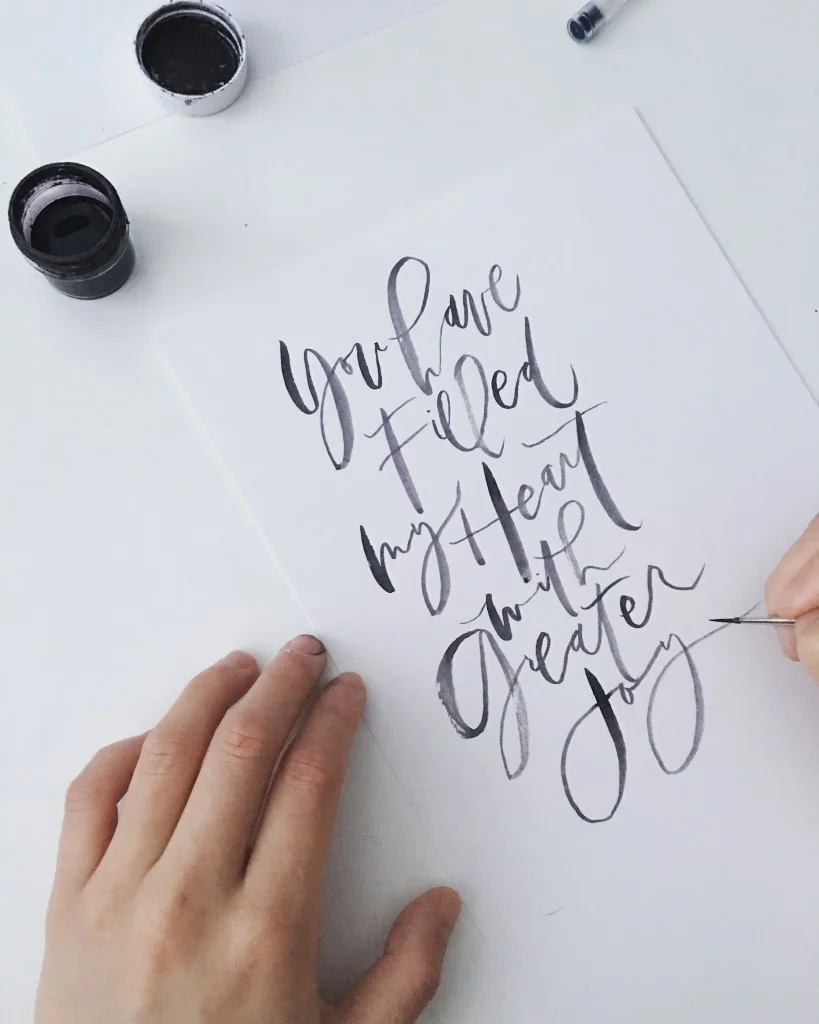 you have
filled
my Heart
with
greater
Joy